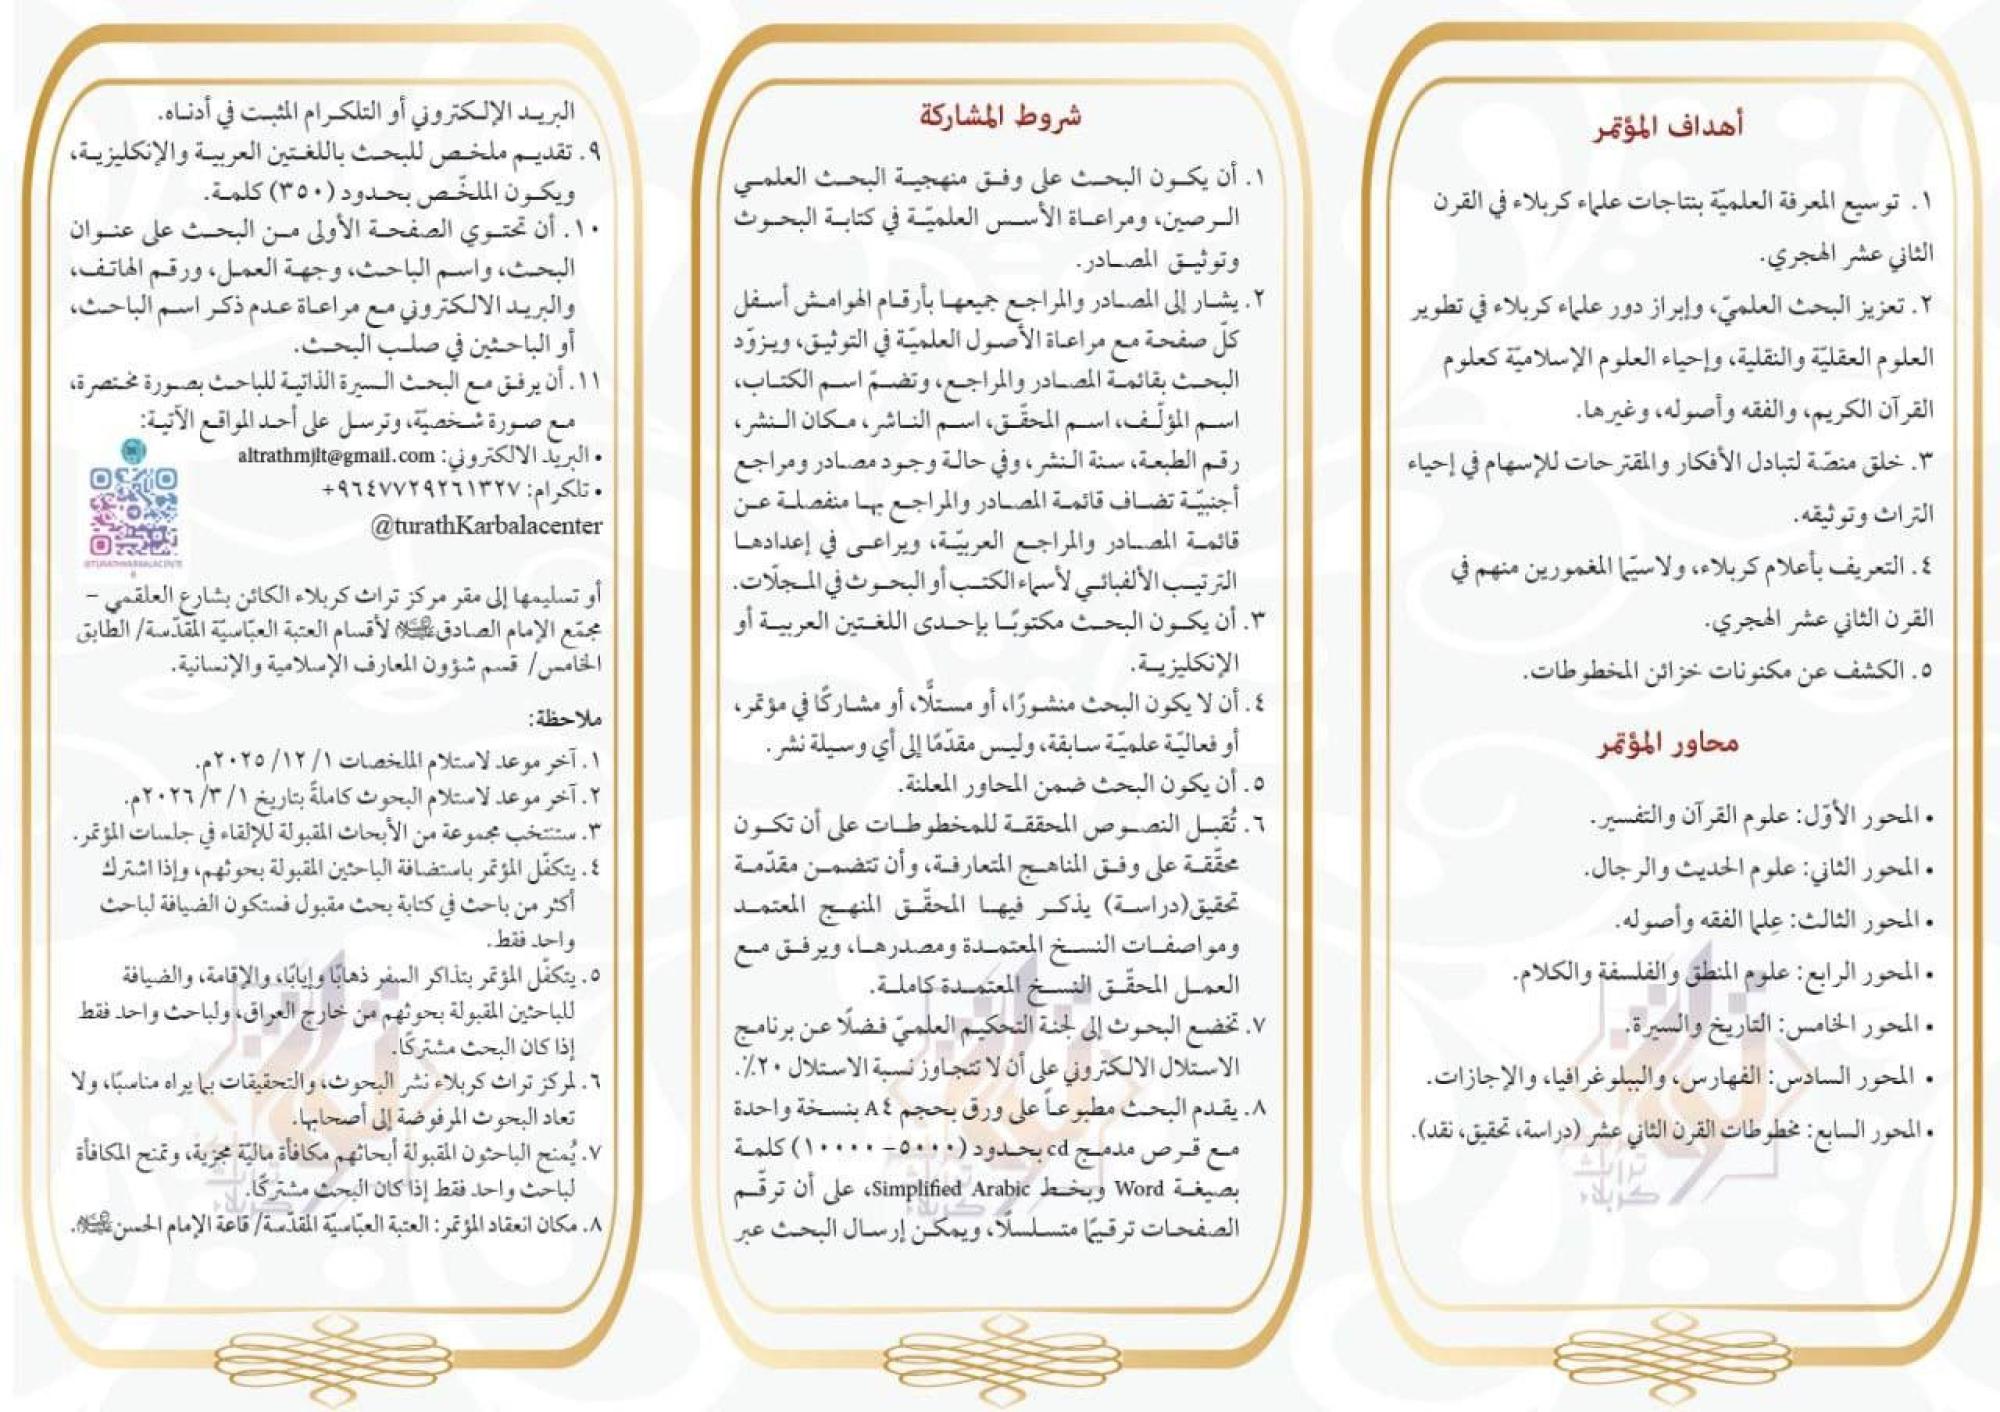 أهداف المؤتمر
١. توسيع المعرفة العلميّة بنتاجات علماء كربلاء في القرن
الثاني عشر الهجري.
٢. تعزيز البحث العلميّ، وإبراز دور علماء كربلاء في تطوير
العلوم العقليّة والنقلية، وإحياء العلوم الإسلاميّة كعلوم
القرآن الكريم، والفقه وأصوله، وغيرها.
٣. خلق منصّة لتبادل الأفكار والمقترحات للإسهام في إحياء
التراث وتوثيقه.
٤. التعريف بأعلام كربلاء، ولاسيّما المغمورين منهم في
القرن الثاني عشر الهجري.
٥. الكشف عن مكنونات خزائن المخطوطات.
محاور المؤتمر
• المحور الأوّل: علوم القرآن والتفسير.
• المحور الثاني: علوم الحديث والرجال.
• المحور الثالث: عِلما الفقه وأصوله.
• المحور الرابع: علوم المنطق والفلسفة والكلام.
• المحور الخامس: التاريخ والسيرة.
• المحور السادس: الفهارس، والببلوغرافيا، والإجازات.
• المحور السابع: مخطوطات القرن الثاني عشر (دراسة، تحقيق، نقد).
تراث
كربلاء
شروط المشاركة
١. أن يكون البحث على وفق منهجية البحث العلمي
الرصين، ومراعاة الأسس العلميّة في كتابة البحوث
وتوثيق المصادر.
٢. يشار إلى المصادر والمراجع جميعها بأرقام الهوامش أسفل
كلّ صفحة مع مراعاة الأصول العلميّة في التوثيق، ويزوّد
البحث بقائمة المصادر والمراجع، وتضمّ اسم الكتاب،
اسم المؤلّف، اسم المحقّق، اسم الناشر، مكان النشر،
رقم الطبعة، سنة النشر، وفي حالة وجود مصادر ومراجع
أجنبيّة تضاف قائمة المصادر والمراجع بها منفصلة عن
قائمة المصادر والمراجع العربيّة، ويراعى في إعدادها
الترتيب الألفبائي لأسماء الكتب أو البحوث في المجلّات.
٣. أن يكون البحث مكتوبًا بإحدى اللغتين العربية أو
الإنكليزية.
٤. أن لا يكون البحث منشورًا، أو مستلًّا، أو مشاركًا في مؤتمر،
أو فعاليّة علميّة سابقة، وليس مقدّمًا إلى أي وسيلة نشر.
٥. أن يكون البحث ضمن المحاور المعلنة.
٦. تُقبل النصوص المحققة للمخطوطات على أن تكون
محقّقة على وفق المناهج المتعارفة، وأن تتضمن مقدّمة
تحقيق(دراسة) يذكر فيها المحقّق المنهج المعتمد
ومواصفات النسخ المعتمدة ومصدرها، ويرفق مع
العمل المحقّق النسخ المعتمدة كاملة.
٧. تخضع البحوث إلى لجنة التحكيم العلميّ فضلًا عن برنامج
الاستلال الالكتروني على أن لا تتجاوز نسبة الاستلال ٢٠٪.
٨. يقدم البحث مطبوعاً على ورق بحجم A٤ بنسخة واحدة
مع قرص مدمج cd بحدود (٥٠٠٠- ١٠٠٠٠) كلمة
بصيغة Word وبخط Simplified Arabic، على أن ترقّم
الصفحات ترقيمًا متسلسلًا، ويمكن إرسال البحث عبر
البريد الإلكتروني أو التلكرام المثبت في أدناه.
٩. تقديم ملخص للبحث باللغتين العربية والإنكليزية،
ويكون الملخّص بحدود (٣٥٠) كلمة.
١٠. أن تحتوي الصفحة الأولى من البحث على عنوان
البحث، واسم الباحث، وجهة العمل، ورقم الهاتف،
والبريد الالكتروني مع مراعاة عدم ذكر اسم الباحث،
أو الباحثين في صلب البحث.
١١. أن يرفق مع البحث السيرة الذاتية للباحث بصورة مختصرة،
مع صورة شخصيّة، وترسل على أحد المواقع الآتية:
• البريد الالكتروني: altrathmjlt@gmail.com
• تلكرام: ٩٦٤٧٧٢٩٢٦١٣٢٧+
@turathKarbalacenter
@TURATHKARBALACENTE
R
أو تسليمها إلى مقر مركز تراث كربلاء الكائن بشارع العلقمي –
مجمّع الإمام الصادق لأقسام العتبة العبّاسيّة المقدّسة/ الطابق
الخامس/ قسم شؤون المعارف الإسلامية والإنسانية.
ملاحظة:
١. آخر موعد لاستلام الملخصات ١/ ١٢/ ٢٠٢٥م.
٢. آخر موعد لاستلام البحوث كاملةً بتاريخ ١/ ٣/ ٢٠٢٦م.
٣. ستنتخب مجموعة من الأبحاث المقبولة للإلقاء في جلسات المؤتمر.
٤. يتكفّل المؤتمر باستضافة الباحثين المقبولة بحوثهم، وإذا اشترك
أكثر من باحث في كتابة بحث مقبول فستكون الضيافة لباحث
واحد فقط.
٥. يتكفّل المؤتمر بتذاكر السفر ذهابًا وإيابًا، والإقامة، والضيافة
للباحثين المقبولة بحوثهم من خارج العراق، ولباحث واحد فقط
إذا كان البحث مشتركًا.
٦. لمركز تراث كربلاء نشر البحوث، والتحقيقات بما يراه مناسبًا، ولا
تعاد البحوث المرفوضة إلى أصحابها.
٧. يُمنح الباحثون المقبولة أبحاثهم مكافأة ماليّة مجزية، وتمنح المكافأة
لباحث واحد فقط إذا كان البحث مشتركًا.
٨. مكان انعقاد المؤتمر: العتبة العبّاسيّة المقدّسة/ قاعة الإمام الحسن.